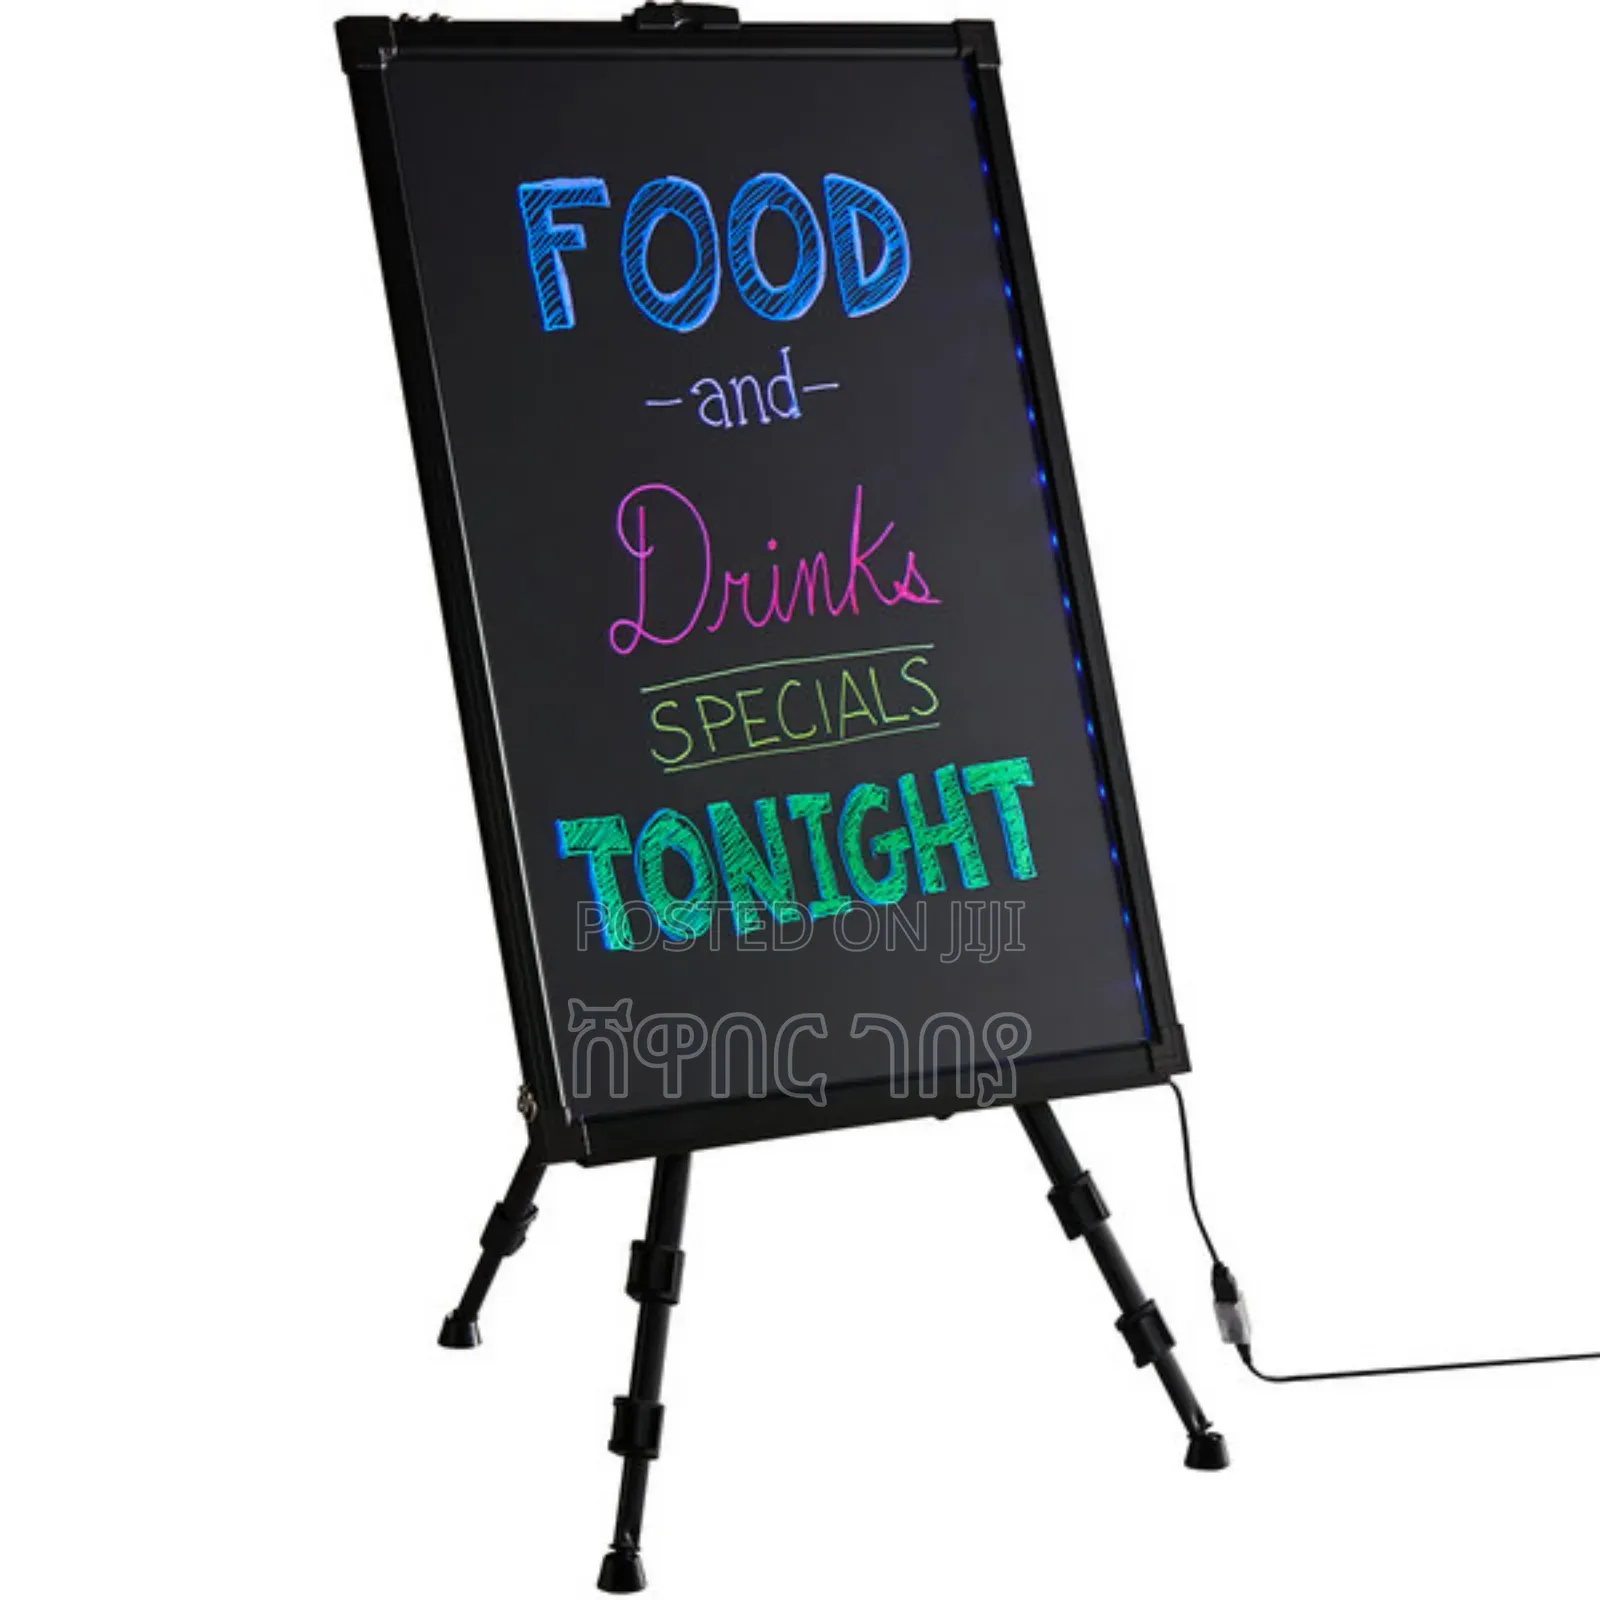 FOOD
-and-
Drinks
SPECIALS
TONIGHT
POSTED ON JIJI
ሸዋበር ገበያ